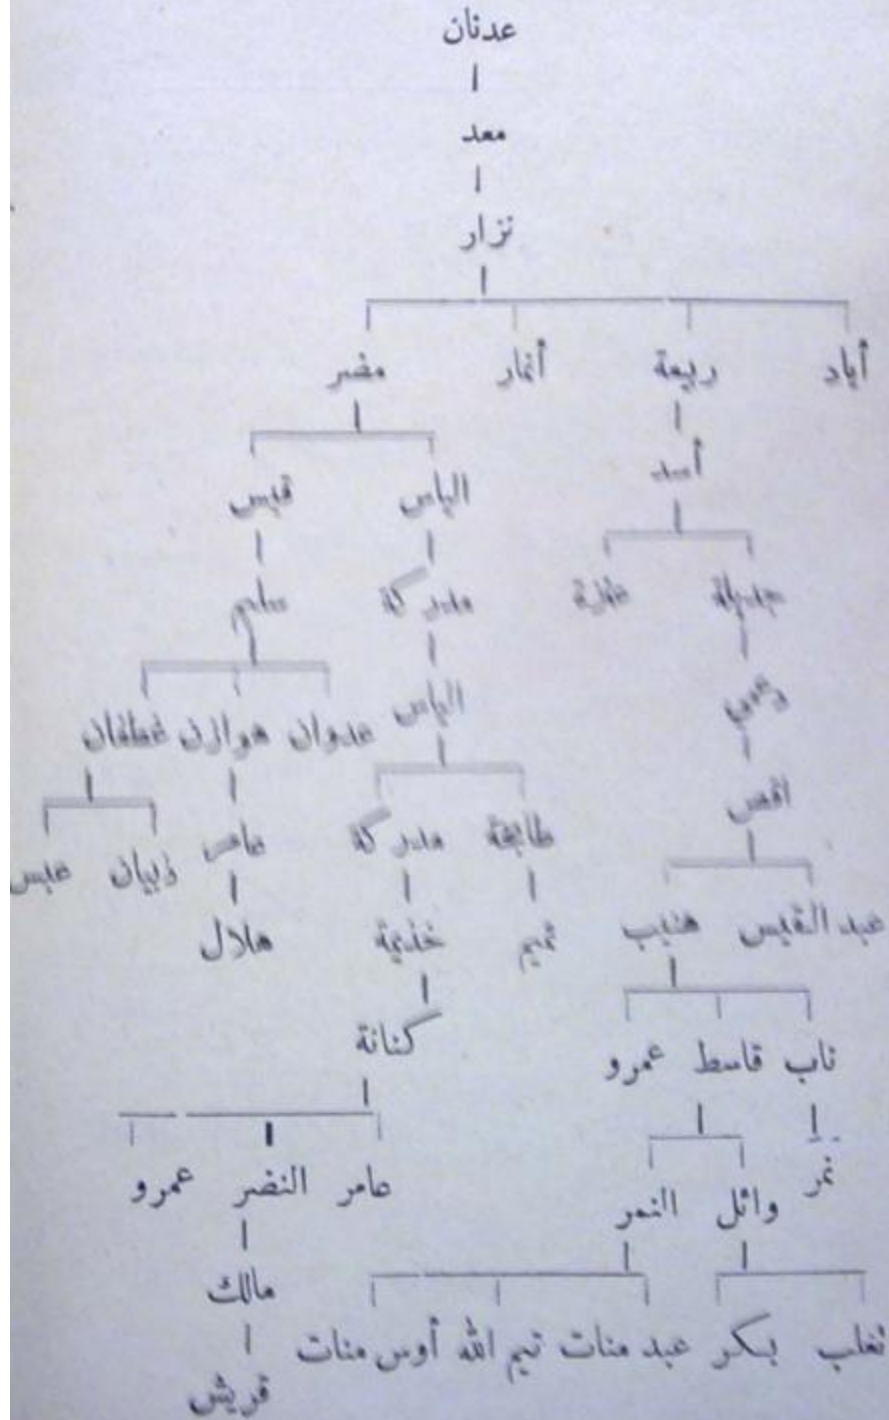 عدنان
معد
نزار
أياد ربيعة أنمار مضر
أسد
الياس قيس
جديلة عنزة مدركة سليم
دعمي الياس
عدوان هوازن غطفان
افصى
طابخة مدركة عامر ذبيان عبس
عبد القيس هنيب تميم خذيمة هلال
ناب قاسط عمرو كنانة
نمر وائل النمر عامر النضر عمرو
مالك
تغلب بكر عبد منات تيم الله أوس منات
قريش